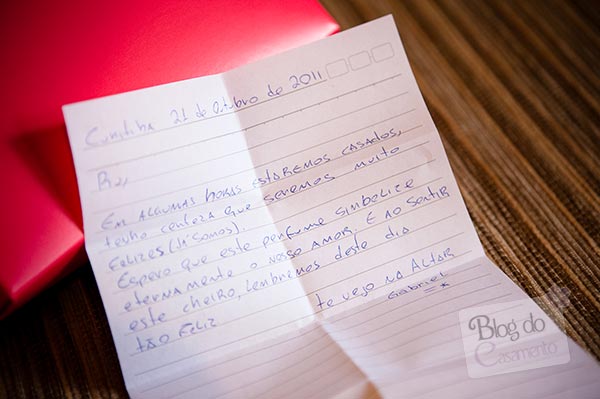 Curitiba 21 de Outubro de 2011
Rê,
Em algumas horas estaremos casados,
tenho certeza que seremos muito
felizes (já somos).
Espero que este perfume simbolize
eternamente o nosso amor. E ao sentir
este cheiro, lembremos deste dia
tão feliz
te vejo no Altar
Gabriel
=*
Blog do
Casamento